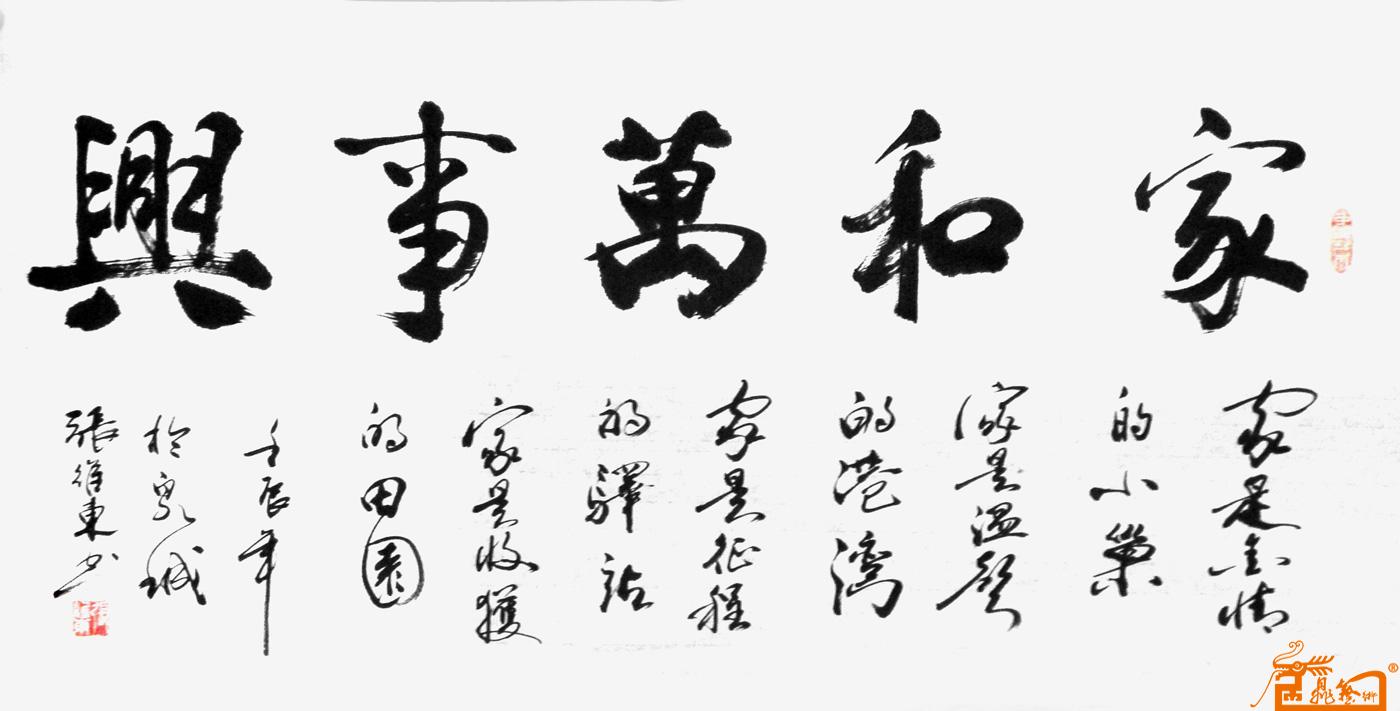 家和萬事興
家是愛情
的小巢
家是溫馨
的港灣
家是征程
的驛站
家是收獲
的田園
壬辰年
於泉城
張維東书